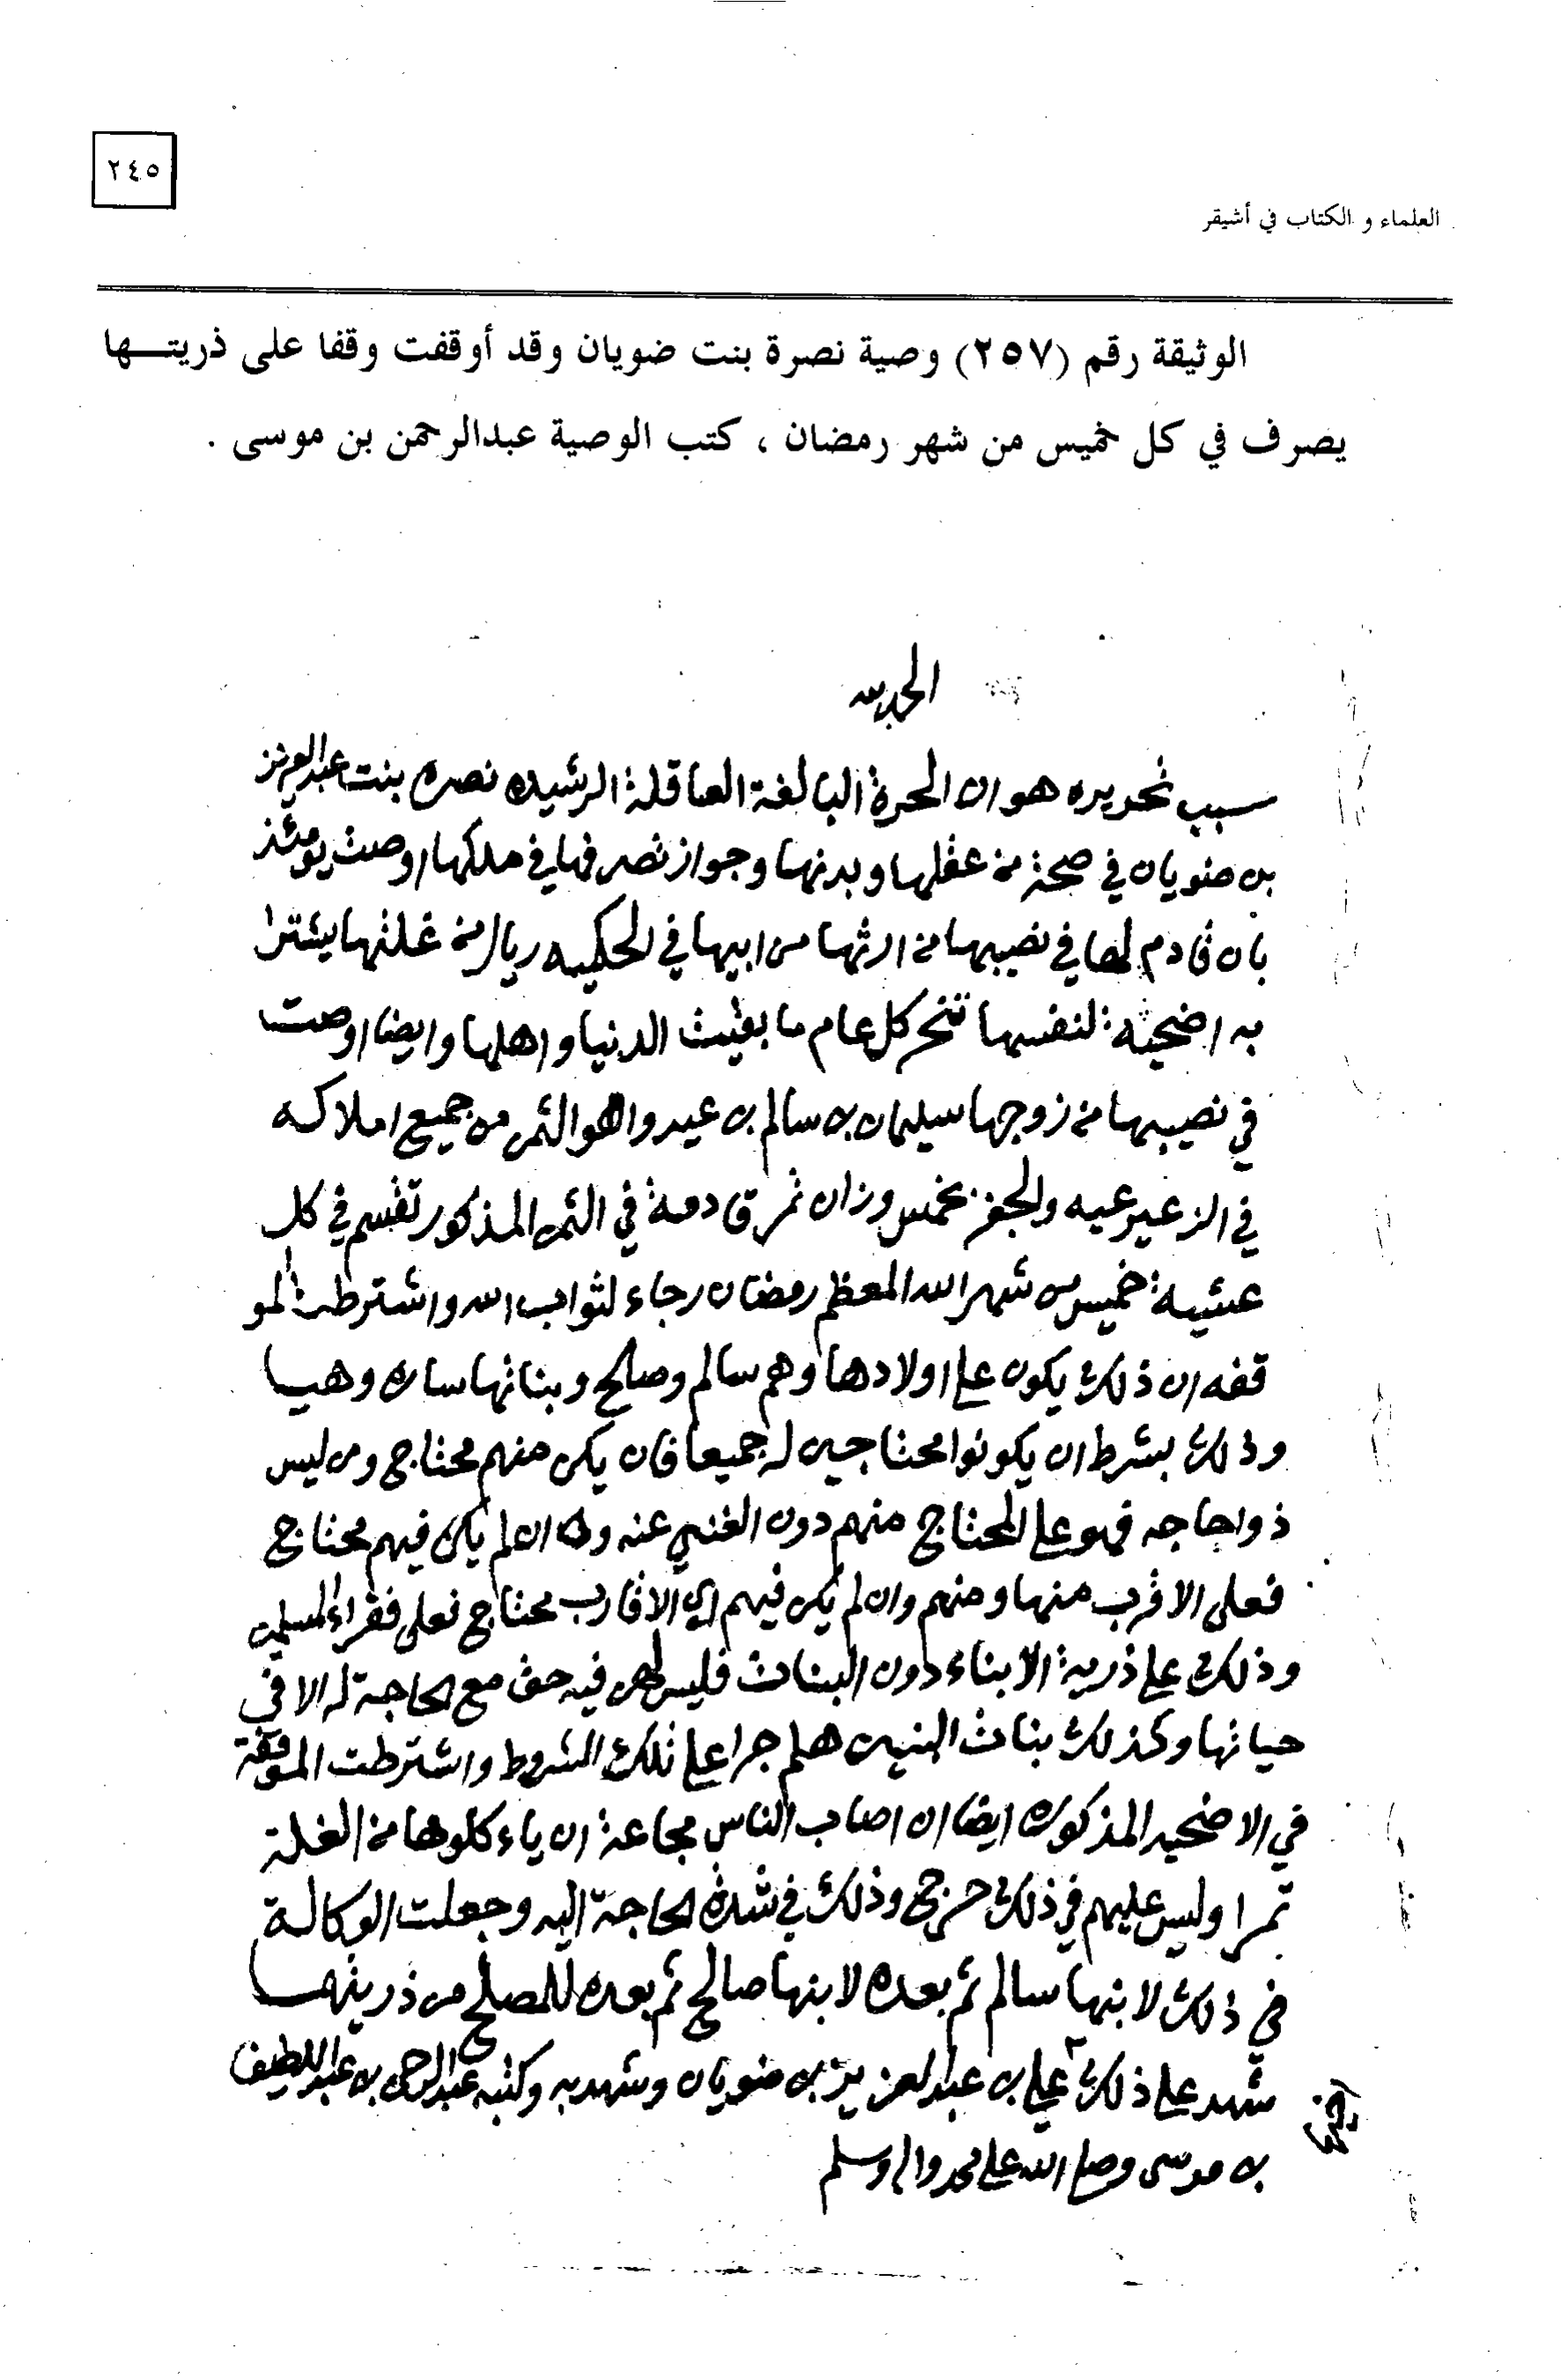 ٢٤٥
العلماء و الكتاب في أشيقر
الوثيقة رقم (٢٥٧) وصية نصرة بنت ضويان وقد أوقفت وقفا على ذريتـــها
يصرف في كل خميس من شهر رمضان ، كتب الوصية عبدالرحمن بن موسى .
الحمد لله
سبب تحريره هو ان الحرة البالغة العاقلة الرشيده نصره بنت عبدالعزيز
بن ضويان في صحة من عقلها وبدنها وجواز تصرفها في ملكها اوصت يومئذ
بان قادم لها في نصيبها من ارثها من ابيها في الحكيه ريال من غلتها يشترا
به اضحية لنفسها تنحر كل عام ما بقيت الدنيا واهلها وايضا اوصت
في نصيبها من زوجها سليمان بن سالم بن عيد وهو الثمن من جميع املاكه
في الزعيرعيه والجفر بخمس وزان تمر قادمة في الثمن المذكور تقسم في كل
عشية خميس من شهر الله المعظم رمضان رجاء لثواب الله واشترطت المو
قفه ان ذلك يكون على اولادها وهم سالم وصلح وبناتها ساره وهيا
وذلك بشرط ان يكونوا محتاجين له جميعا فان يكن منهم محتاج ومن ليس
ذواحاجه فهو على المحتاج منهم دون الغني عنه ان لم يكن فيهم محتاج
فعلى الاقرب منها ومنهم وان لم يكن فيهم اي الاقارب محتاج فعلى فقراء المسلمين
وذلك على ذرية الابناء دون البنات فليس لهن فيه حق مع الحاجة له الا في
حياتها وكذلك بنات البنين هلم جرا على تلك الشروط واشترطت الموقفة
في الاضحيه المذكوره ايضا ان اصاب الناس مجاعة ان ياءكلوها من الغلة
تمرا وليس عليهم في ذلك حرج وذلك في شدة الحاجة اليه وجعلت الوكالة
في ذلك لابنها سالم ثم بعده لابنها صالح ثم بعده للمصلح من ذريتها
شهد على ذلك علي بن عبدالعزيز بن ضويان وشهد به وكتبه عبدالرحمن بن عبداللطيف
بن موسى وصلى الله على محمد واله وسلم